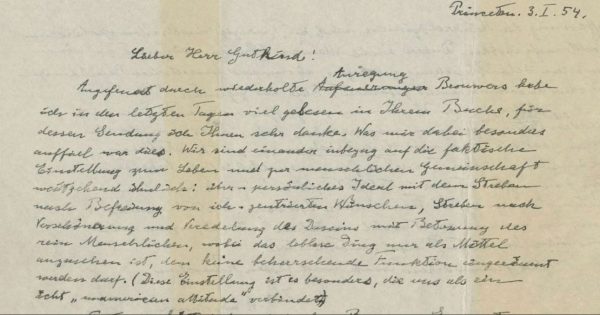 Princeton. 3. I. 54.
Lieber Herr Gutkind!
Angefeuert durch wiederholte Anregung Brouwers habe
ich in den letzten Tagen viel gelesen in Ihrem Buche, für
dessen Sendung ich Ihnen sehr danke. Was mir dabei besonders
auffiel war dies. Wir sind einander inbezug auf die faktische
Einstellung zum Leben und zur menschlichen Gemeinschaft
weitgehend ähnlich: über-persönliches Ideal mit dem Streben
nach Befreiung von ich-zentrierten Wünschen, Streben nach
Verschönerung und Veredelung des Daseins mit Betonung des
rein Menschlichen, wobei das leblose Ding nur als Mittel
anzusehen ist, dem keine beherrschende Funktion eingeräumt
werden darf. (Diese Einstellung ist es besonders, die uns als ein
echt „unamerican attitude" verbindet)